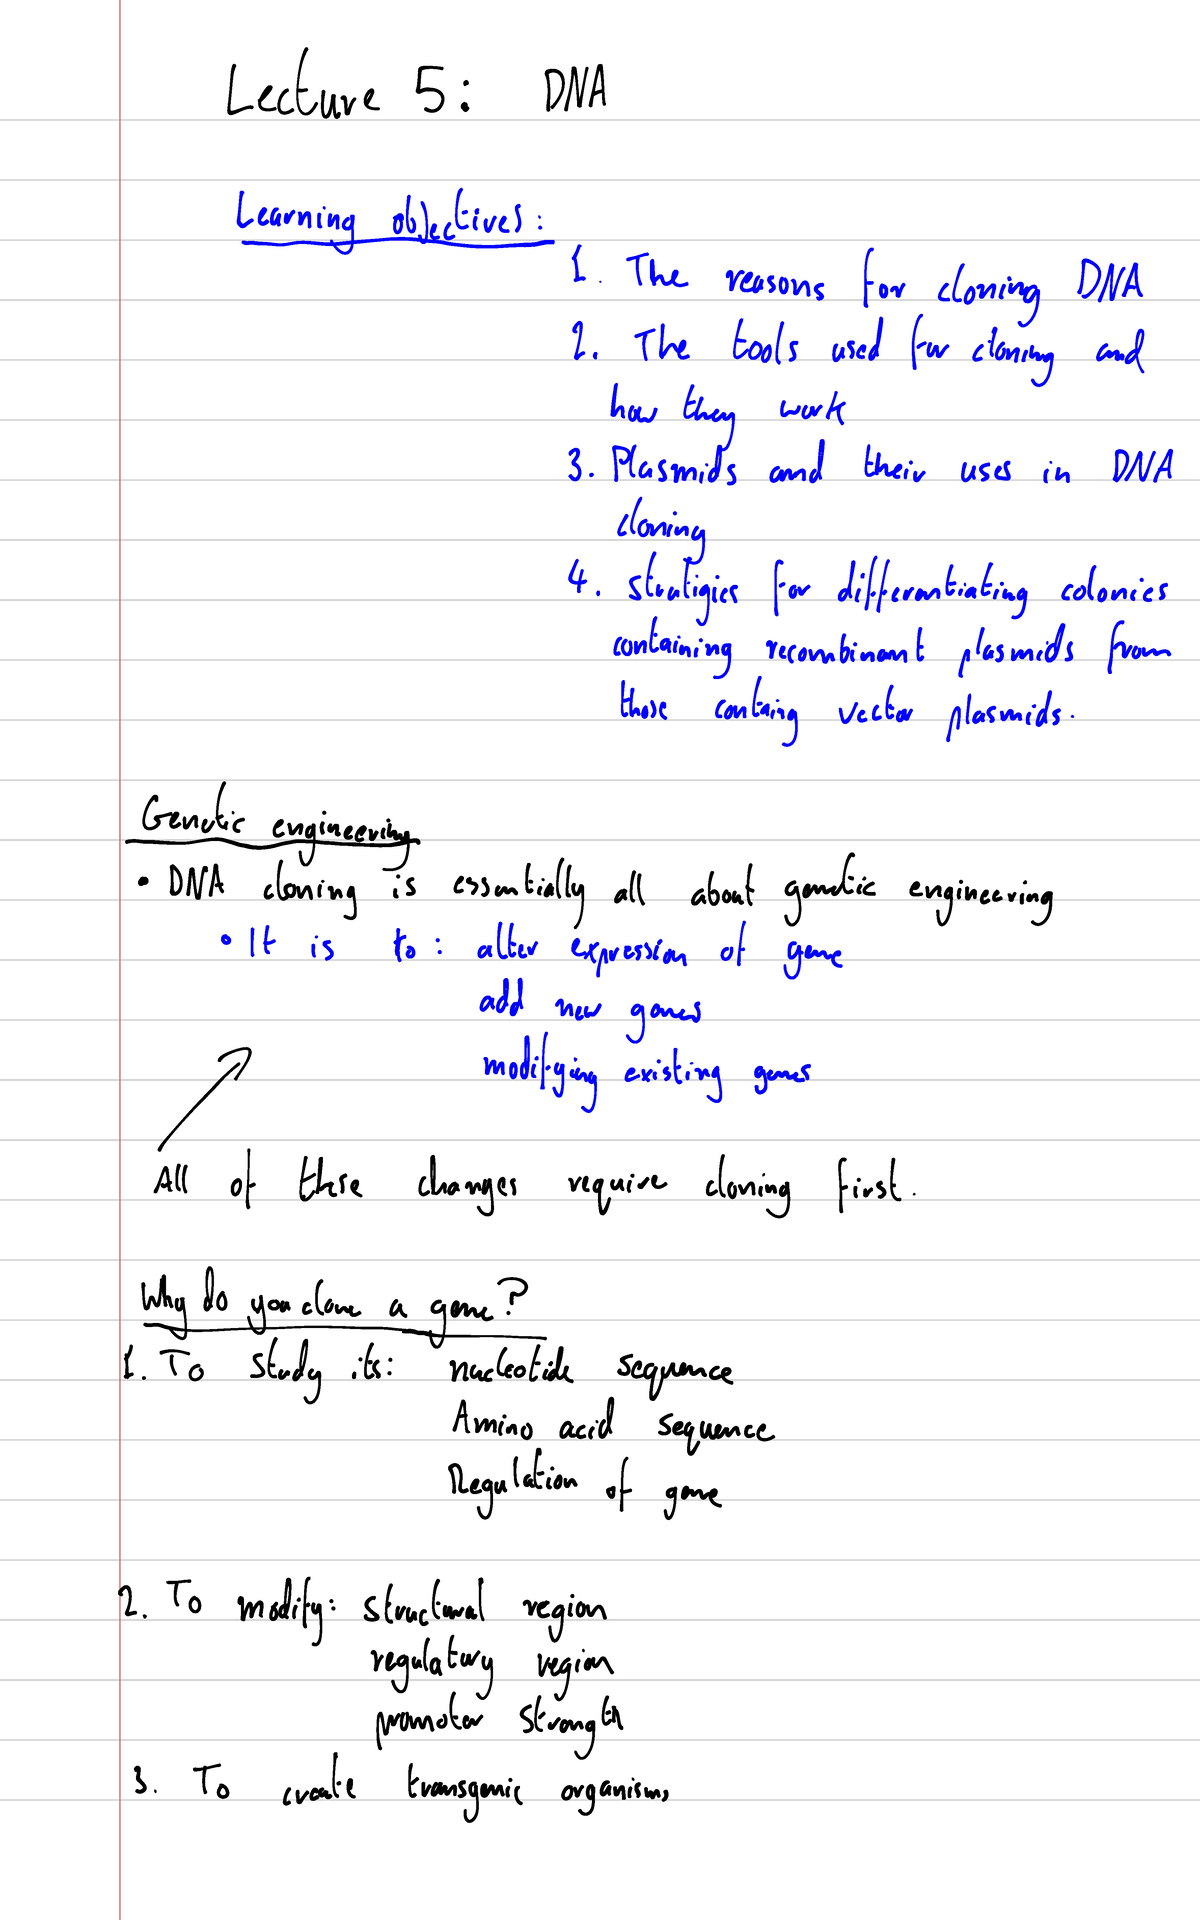 Lecture 5: DNA
Learning objectives:
1. The reasons for cloning DNA
2. The tools used for cloning and
how they work
3. Plasmids and their uses in DNA
cloning
4. stratigies for differentiating colonies
containing recombinant plasmids from
those containg vector plasmids.
Genetic engineering
• DNA cloning is essentially all about genetic engineering
• It is to: alter expression of gene
add new genes
modifying existing genes
All of these changes require cloning first.
Why do you clone a gene?
1. To study its: nucleotide sequence
Amino acid sequence
Regulation of gene
2. To modify: structural region
regulatory region
promoter strength
3. To create transgenic organisms